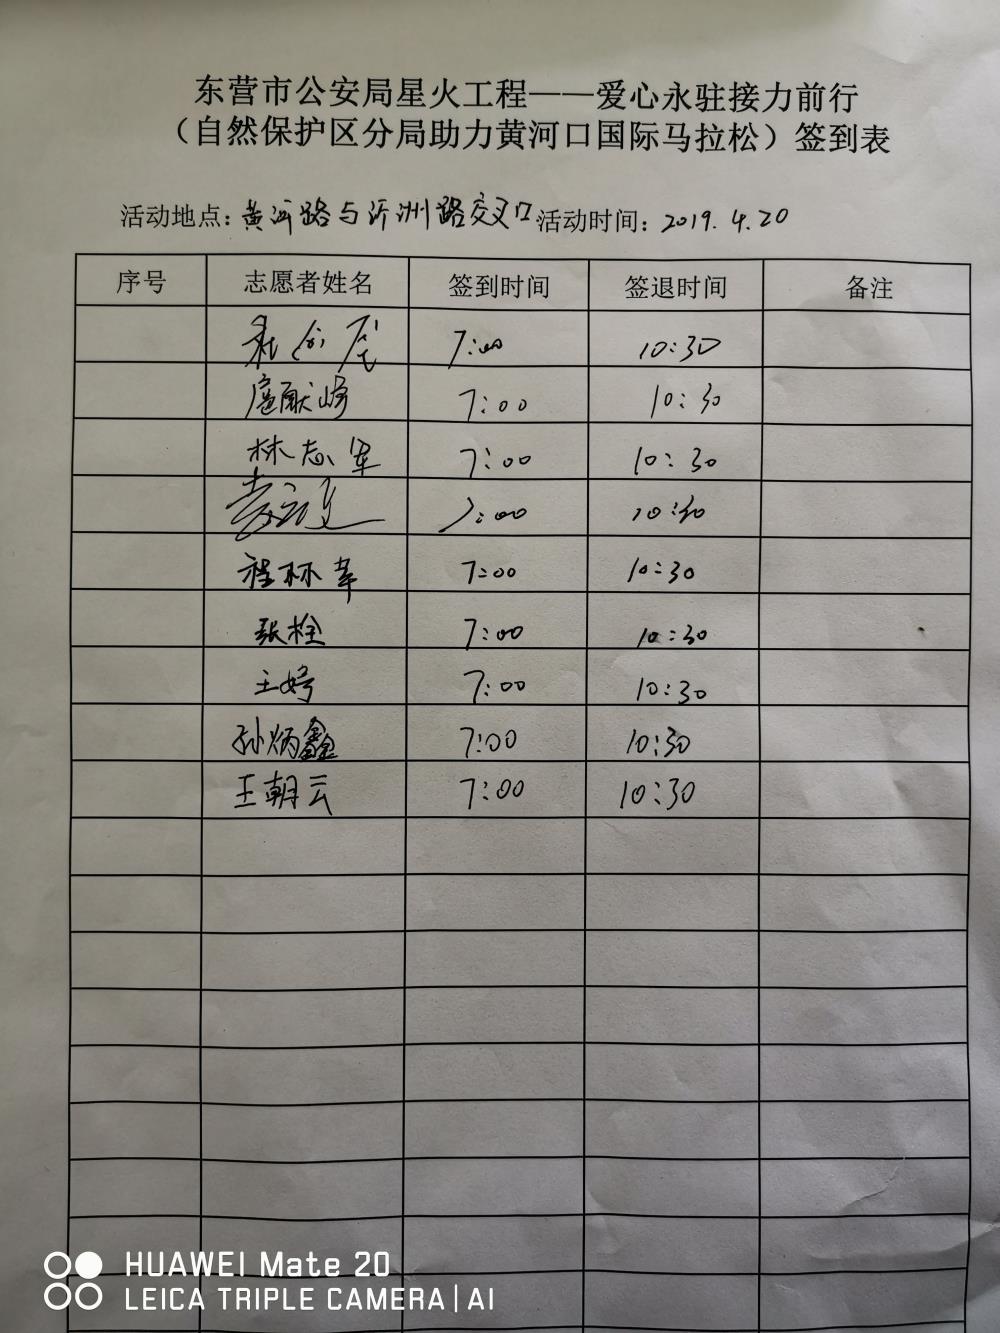 东营市公安局星火工程——爱心永驻接力前行
（自然保护区分局助力黄河口国际马拉松）签到表
活动地点：黄河路与沂州路交叉口 活动时间：2019.4.20
序号 志愿者姓名 签到时间 签退时间 备注
7:00 10:30
扈献峰 7:00 10:30
林志军 7:00 10:30
7:00 10:30
程林 7:00 10:30
张栓 7:00 10:30
王婷 7:00 10:30
孙炳鑫 7:00 10:30
王朝云 7:00 10:30
HUAWEI Mate 20
LEICA TRIPLE CAMERA | AI